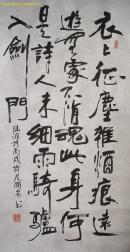 衣上征塵雜酒痕遠
遊無處不消魂此身何
是詩人未細雨騎驢
入劍門
陸游詩丙戌